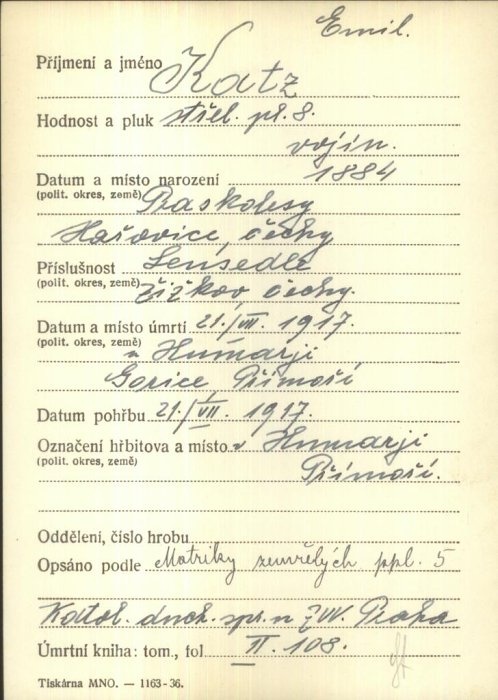 Emil.
Příjmení a jméno Katz
Hodnost a pluk střel. pl. 8.
vojín.
1884
Datum a místo narození
(polit. okres, země) Praskolesy
Hašovice, čechy
Příslušnost Sensedle
(polit. okres, země) Žižkov, čechy.
Datum a místo úmrtí 21./VII. 1917.
(polit. okres, země) u Humarji
Gorice, Přímoří
Datum pohřbu 21./VII. 1917.
Označení hřbitova a místo v Humarji
(polit. okres, země) Přímoří.
Oddělení, číslo hrobu
Opsáno podle Matriky zemřelých ppl. 5
Katol. duch. spr. n ZVV. Praha
Úmrtní kniha: tom., fol II. 108.
Tiskárna MNO. — 1163-36.